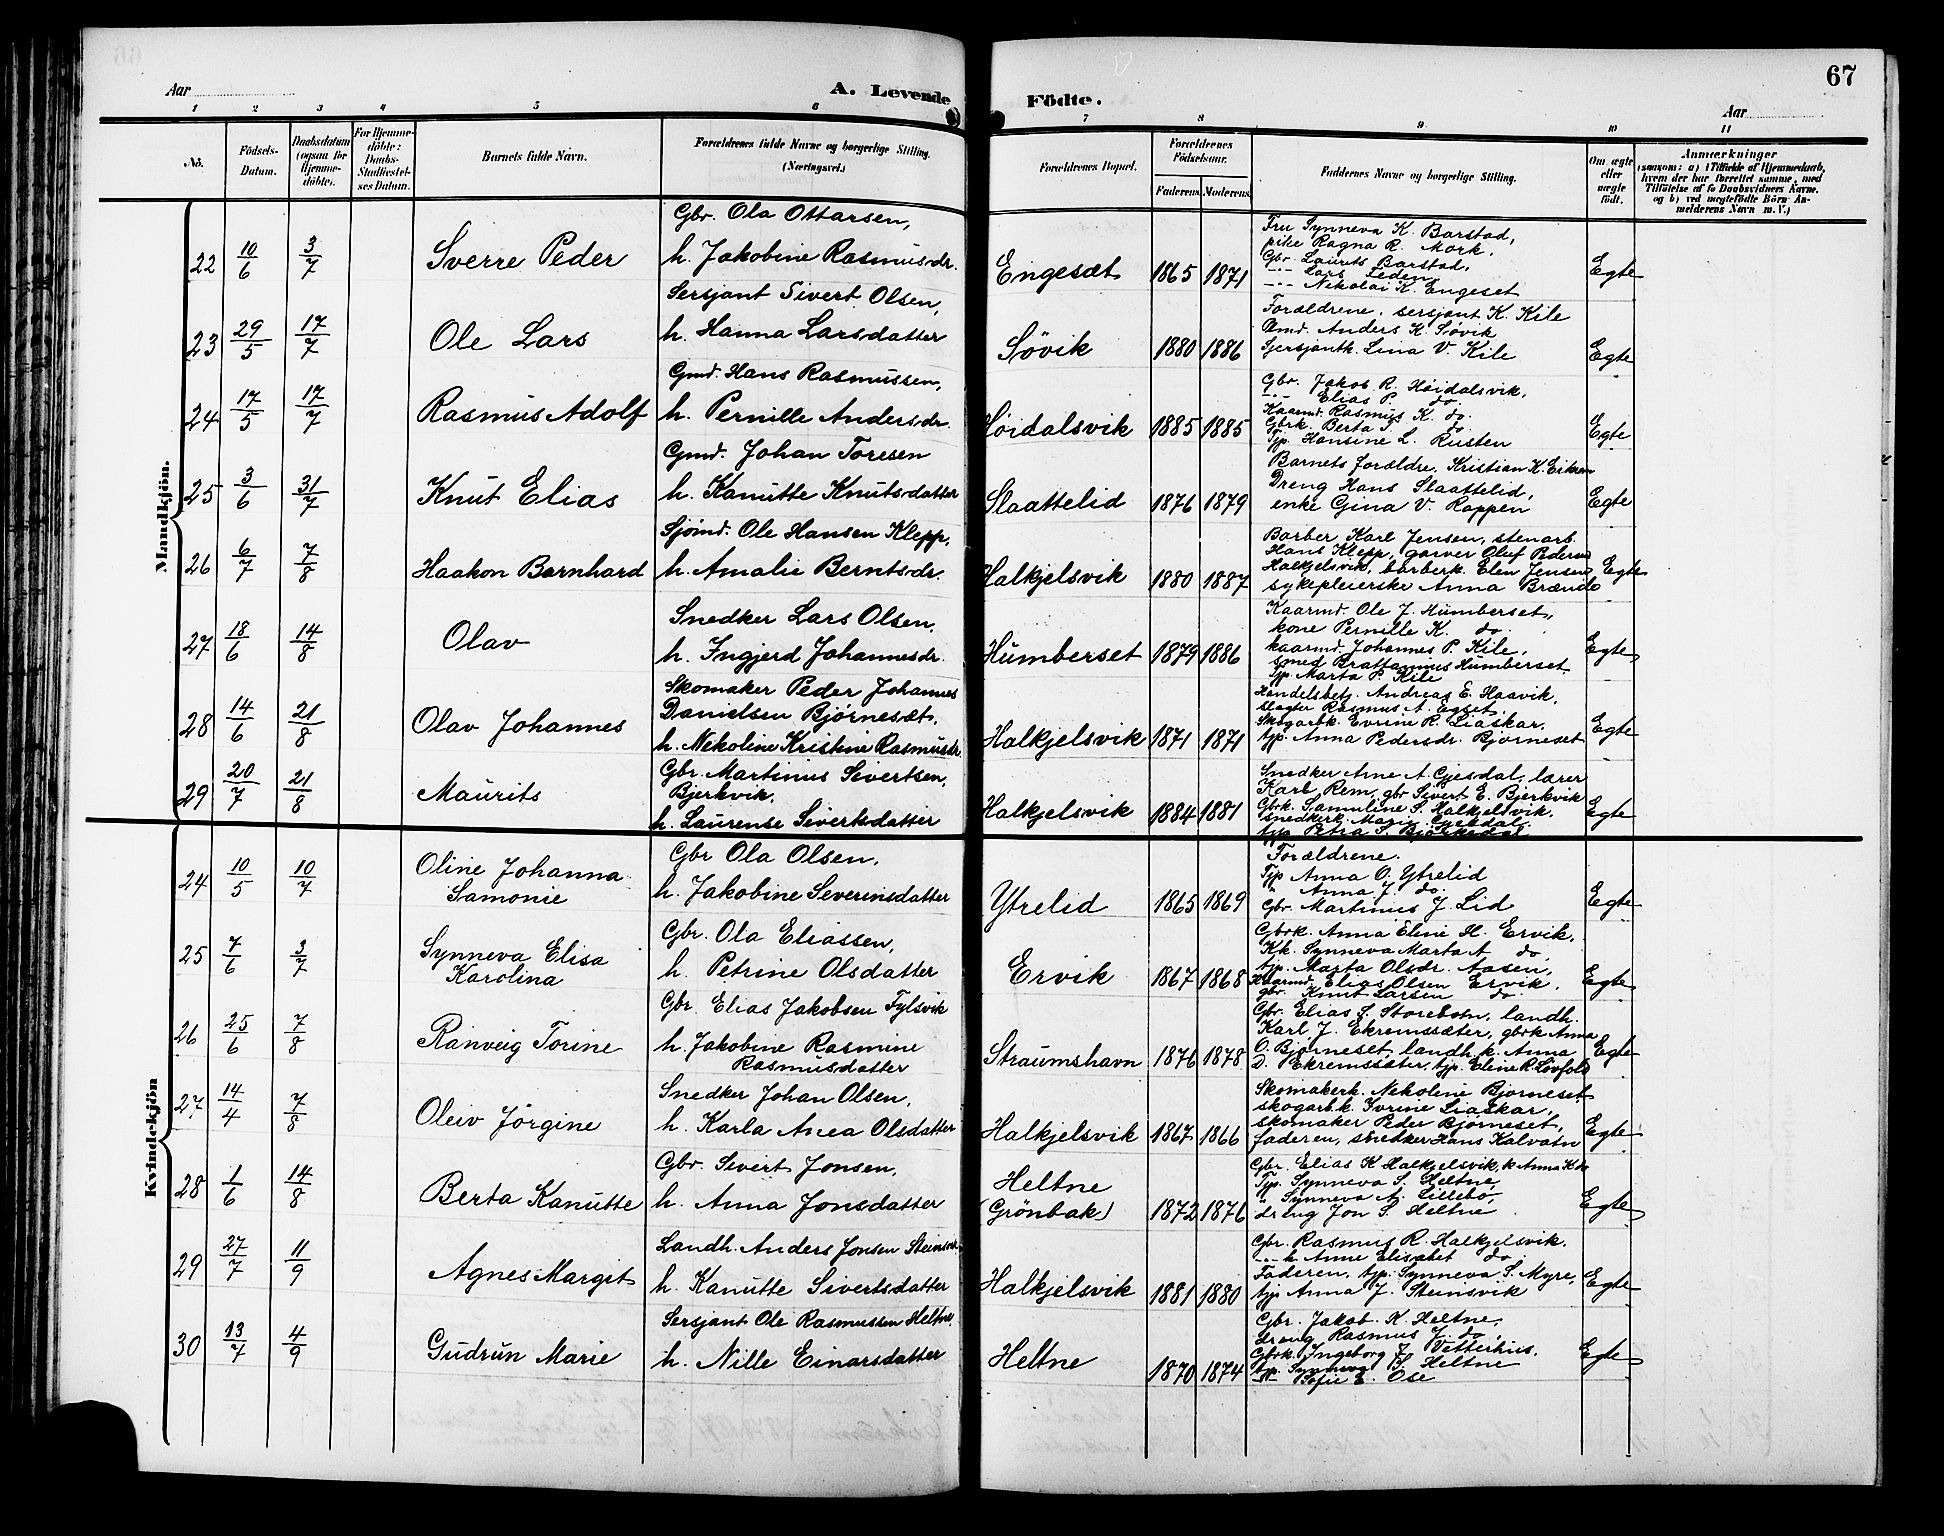 67
Aar
A. Levende
Födte.
Aar
1 2 3 4 5 6 7 8 9 10 11
No.
Födsels-Datum.
Daabsdatum (ogsaa for Hjemme-döbte).
For Hjemme-döbte: Daabs-Stadfæstel-ses Datum.
Barnets fulde Navn.
Forældrenes fulde Navne og borgerlige Stilling.
(Næringsvei.)
Forældrenes Bopæl.
Forældrenes Födselsaar.
Faderens. Moderens.
Faddernes Navne og borgerlige Stilling.
Om ægte eller uægte födt.
Anmærkninger
(saasom: a) i Tilfælde af Hjemmedaab,
hvem der har forrettet samme, med
Tilföielse af to Daabsvidners Navne.
og b) ved uægtefödte Börn An-
melderens Navn m. V.)
Mandkjön.
22 10/6 3/7 Sverre Peder
Gbr. Ola Ottarsen,
h. Jakobine Rasmusdr.
Engesæt 1865 1871
Fru Synneva K. Barstad,
pike Ragna R. Mork.
Gbr. Laurits Barstad.
-"- Lars
-"- Nikolai K. Engeset
Egte
23 29/5 17/7 Ole Lars
Sersjant Sivert Olsen,
h. Hanna Larsdatter
Søvik 1880 1886
Forældrene, sersjant K. Kile
Anders K. Søvik
Sersjantk. Lina V. Kile
Egte
24 17/5 17/7 Rasmus Adolf
Gmd. Hans Rasmussen,
h. Pernille Andersdr.
Høidalsvik 1885 1885
Gbr. Jakob R. Høidalsvik.
-"- Elias P. do
Kaarmd. Rasmus K. do.
Gbrk. Berta do
Tjp. Hansine L. Rusten
Egte
25 3/6 31/7 Knut Elias
Gmd. Johan Toresen
h. Kanutte Knutsdatter
Slaattelid 1876 1879
Barnets forældre, Kristian K. Eiksen
Dreng Hans Slaattelid,
enke Gina V. Rappen
Egte
26 6/7 7/8 Haakon Bernhard
Sjömd. Ole Hansen Klepp,
h. Amalie Berntsdr.
Halkjelsvik 1880 1887
Barber Karl Jensen, stenarb.
Hans Klepp, garver Oluf Pedersen
Halkjelsvik, barberk. Elen Jensen
sykepleierske Anna Brænde
Egte
27 18/6 14/8 Olav
Snedker Lars Olsen,
h. Ingjerd Johannesdr.
Humberset 1879 1886
Kaarmd. Ole J. Humberset,
kone Pernille K. do.
kaarmd. Johannes P. Kile,
smed Brattanius Humberset
tjp. Marta P. Kile
Egte
28 14/6 21/8 Olav Johannes
Skomaker Peder Johannes
Danielsen Bjørnesæt,
h. Nekoline Kristine Rasmusdr.
Halkjelsvik 1871 1871
Handelsbetj. Andreas E. Haavik,
slagter Rasmus A. Egset.
Skogarbk. Evrine R. Liaskar.
tjp. Anna Pedersdr. Bjørneset
Egte
29 20/7 21/8 Maurits
Gbr. Martinus Sivertsen,
Bjerkvik,
h. Laurense Sivertsdatter
Halkjelsvik 1884 1881
Snedker Arne A. Gjesdal, lærer
Karl Rem, gbr Sivert E. Bjerkvik
Gbrk. Samuline S. Halkjelsvik.
snedkerk. Marie Gjesdal.
tjp. Petra S.
Egte
Kvindekjön
24 10/5 10/7 Oline Johanna
Samonie
Gbr Ola Olsen,
h. Jakobine Severinsdatter
Ytrelid 1865 1869
Forældrene.
Tjp Anna O. Ytrelid
" Anna J. do.
Gbr. Martinus J. Lid
Egte
25 7/6 3/7 Synneva Elisa
Karolina
Gbr. Ola Eliassen,
h. Petrine Olsdatter
Ervik 1867 1868
Gbrk. Anna Eline H. Ervik.
Kk. Synneva Marta A do.
tjp. Marta Olsdr. Aasen,
Kaarmd. Elias Olsen Ervik.
gbr. Knut Larsen do.
Egte
26 25/6 7/8 Ranveig Torine
Gbr. Elias Jakobsen Fylsvik
h. Jakobine Rasmine
Rasmusdatter
Straumshavn 1876 1878
Gbr. Elias S. Storebotn, landh.
Karl J. Ekremssæter, gbrk Anna
O. Bjørneset, landh.k. Anna
D. Ekremssæter, tjp. Eline R Løvfold
Egte
27 14/4 7/8 Oleiv Jörgine
Snedker Johan Olsen,
h. Karla Anea Olsdatter
Halkjelsvik 1867 1866
Skomakerk. Nekoline Bjørneset
skogarb.k. Ivrine Liaskar,
skomaker Peder Bjørneset,
faderen, snedker Hans Kalvatn
Egte
28 1/6 14/8 Berta Kanutte
Gbr. Sivert Jonsen,
h. Anna Jonsdatter
Heltne
(Grönbak) 1872 1876
Gbr. Elias K Halkjelsvik, k Anna K do
Tjp. Synneva S. Heltne,
" Synneva A. Lillebø,
dreng Jon S. Heltne
Egte
29 27/7 11/9 Agnes Margit
Landh. Anders Jonsen Steinsvik
h. Kanutte Sivertsdatter
Halkjelsvik 1881 1880
Gbr. Rasmus R. Halkjelsvik.
-"- h Anne Elisabet do.
Faderen, tjp. Synneva S. Myre,
tjp Anna J. Steinsvik
Egte
30 13/7 4/9 Gudrun Marie
Sersjant Ole Rasmussen Heltne,
h. Nille Einarsdatter
Heltne 1870 1874
Gbr. Jakob K. Heltne,
dreng Rasmus J. do.
Gbrk. Ingeborg J. Vetterhus.
tjp. Synneva B. Heltne
-"- Sofie E. Ose
Egte